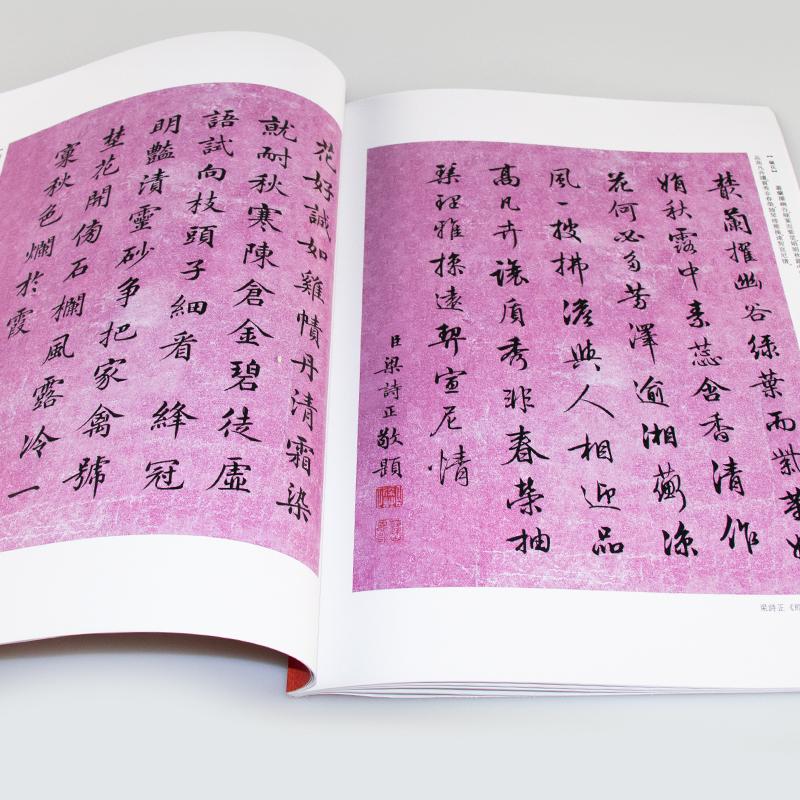 叢蘭擢幽谷綠葉而紫莖娟
娟秋露中素蕊含香清作
花何必多芳澤渝湘蘅涼
風一披拂澹與人相迎品
高凡卉讓質秀非春榮抽
琹理雅操遠契宣尼情
臣梁詩正敬題
梁詩正
花好誠如雞幘丹清霜染
就耐秋寒陳倉金碧徒虛
語試向枝頭子細看絳冠
明豔漬靈砂爭把家禽號
埜花開傍石欄風露冷一
窠秋色爛於霞